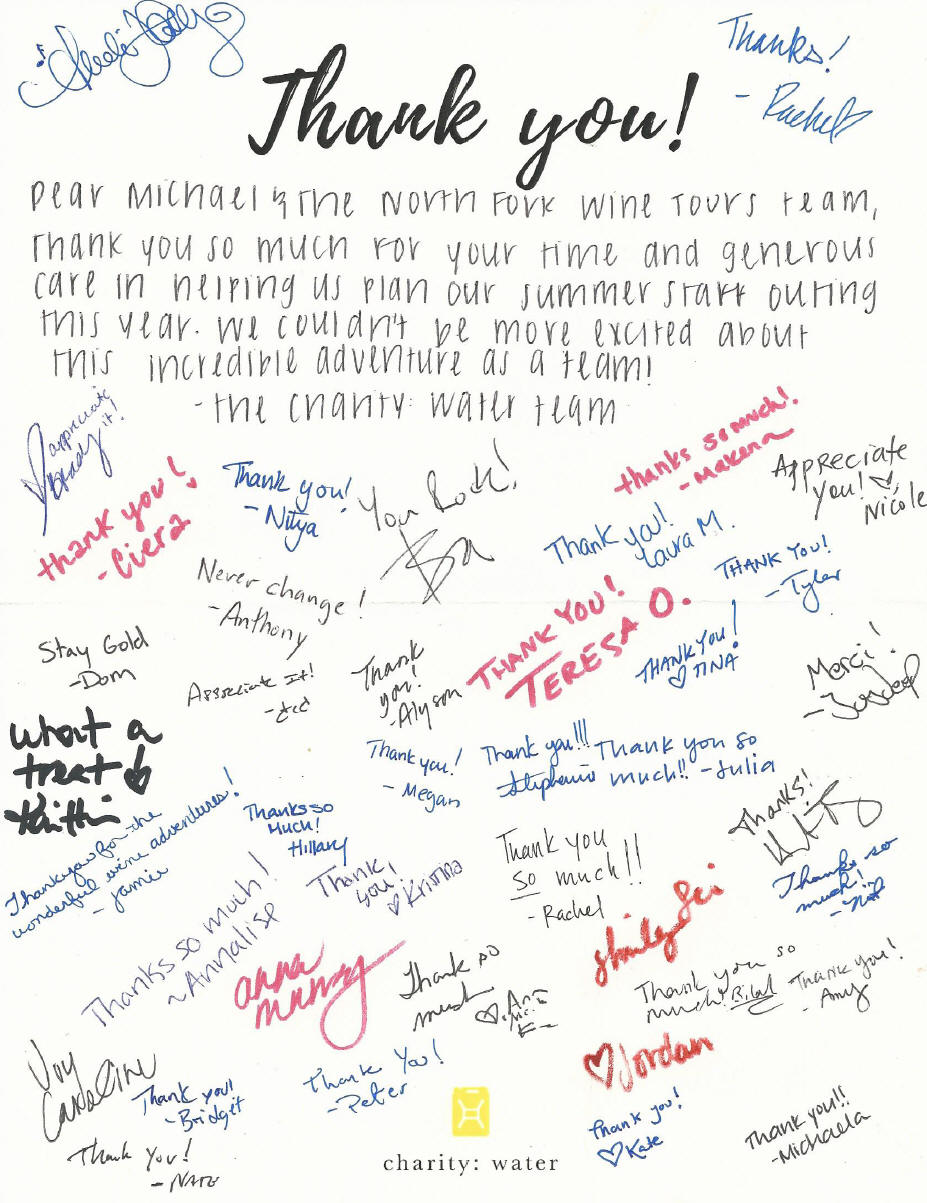 Thanks!
- Rachel
Thank you!
Dear Michael & The North Fork Wine Tours team,
Thank you so much for your time and generous
care in helping us plan our summer staff outing
this year. We couldn't be more excited about
this incredible adventure as a team!
- The charity: water team
appreciate
it!
Brady
thank you!
- Ciera
Thank you!
- Nitya
You Rock!
thanks so much!
- Makena
Appreciate
you!
Nicole
Thank you!
Laura M.
THANK YOU!
- Tyler
Never change!
- Anthony
THANK YOU!
TERESA O.
THANK YOU!
TINA
Stay Gold
- Dom
Appreciate It!
Thank
you!
- Alyson
Merci!
what a
treat
Kaitlin
Thank you!
- Megan
Thank you!!!
Stephanie
Thank you so
much!! - Julia
Thank you for the
wonderful wine adventures!
- Jamie
Thanks so
Much!
Hillary
Thanks!
Thank
you!
Kristina
Thank you
so much!!
- Rachel
Thanks so
much!
Thanks so much!
~ Annalise
anna
murray
Thank so
much
Thank you so
much!
Thank you!
Amy
Jordan
Caroline
Thank you!
- Bridget
Thank You!
- Peter
Thank you!
Kate
Thank you!!
- Michaela
Thank You!
- NATE
charity: water